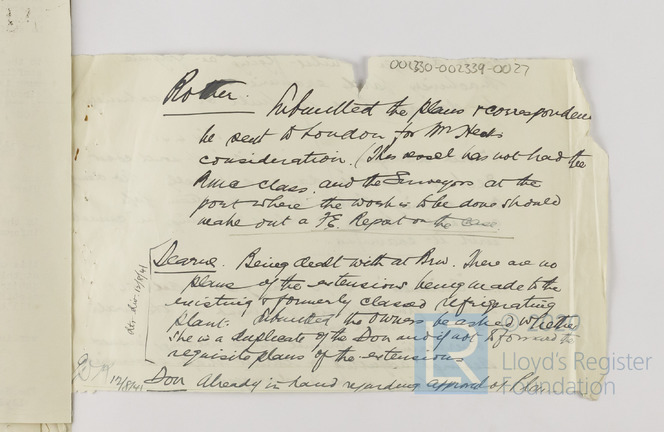 002330-002339-0027
Rother. Submitted the plans & correspondence
be sent to London for Mr Heck's
consideration. (This vessel has not had the
RMC class. and the Surveyors at the
port where the work is to be done should
make out a F.E. Report on the case.
Dearne. Being dealt with at Brw. There are no
plans of the extensions being made to the
existing & formerly classed refrigerating
plant. Submitted the owners be asked whether
she is a duplicate of the Don and if not to forward the
requisite plans of the extensions
12/8/41
Don Already in hand regarding approval of Plans
12/8/41
© 2020
LR
Lloyd's Register
Foundation